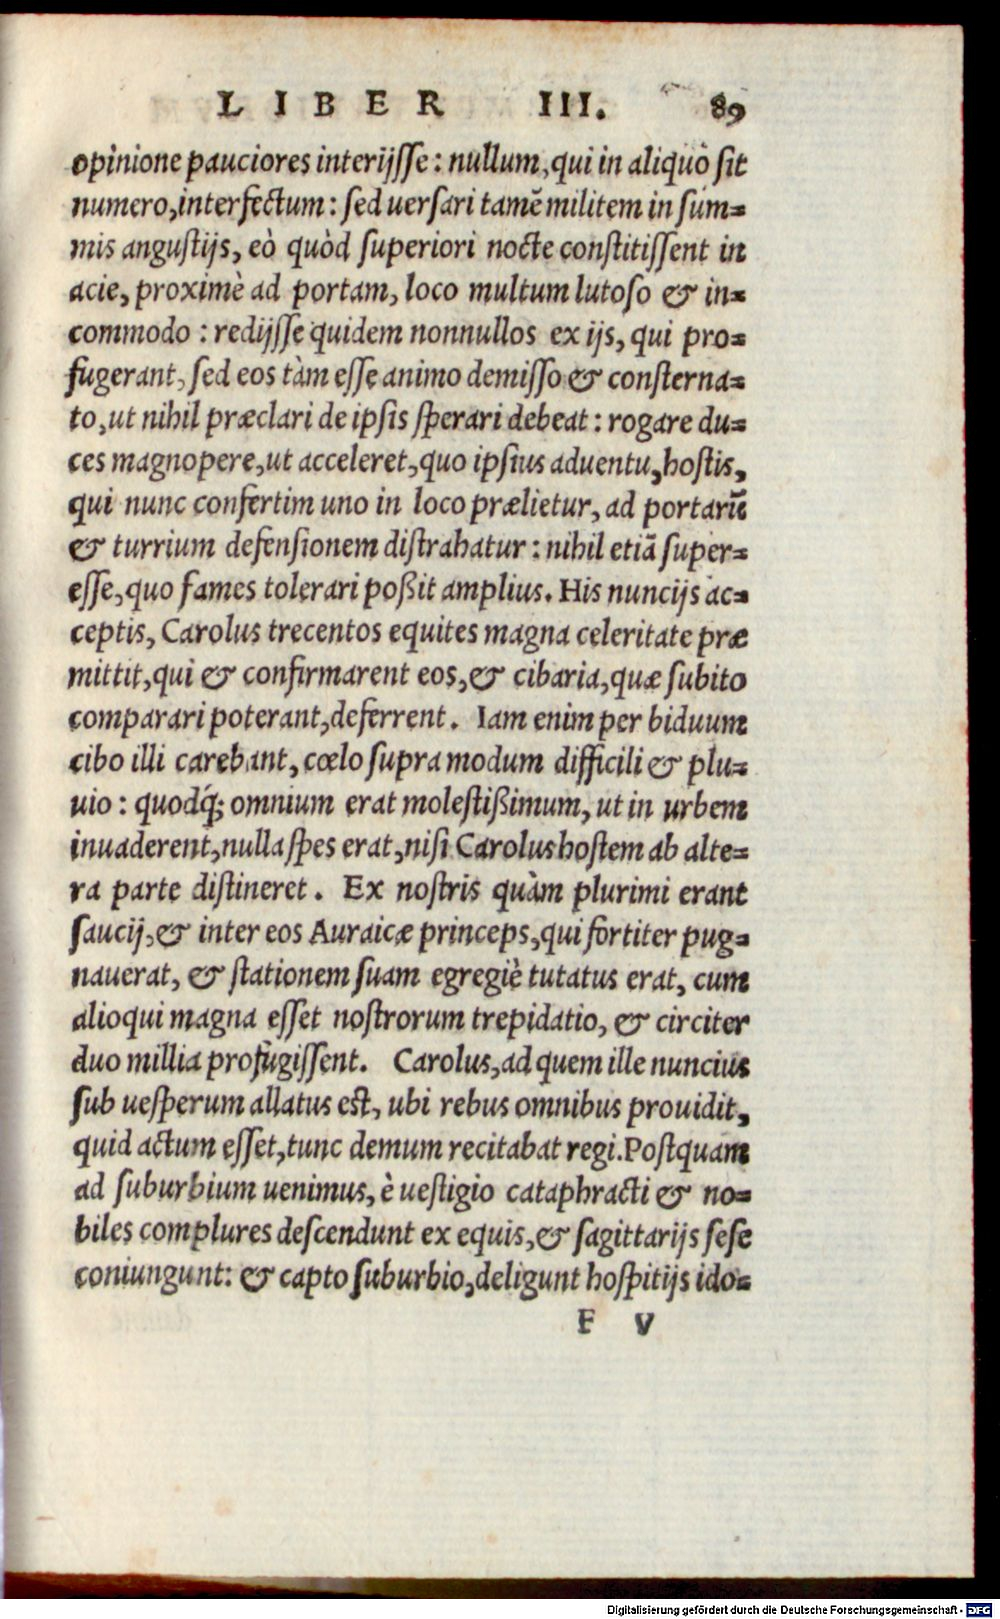 LIBER III. 89
opinione pauciores interijsse: nullum, qui in aliquò sit
numero, interfectum: sed uersari tamē militem in sum=
mis angustijs, eò quòd superiori nocte constitissent in
acie, proximè ad portam, loco multum lutoso & in=
commodo: redijsse quidem nonnullos ex ijs, qui pro=
fugerant, sed eos tàm esse animo demisso & consterna=
to, ut nihil præclari de ipsis sperari debeat: rogare du=
ces magnopere, ut acceleret, quo ipsius aduentu, hostis,
qui nunc confertim uno in loco prælietur, ad portarū
& turrium defensionem distrahatur: nihil etiā super=
esse, quo fames tolerari poßit amplius. His nuncijs ac=
ceptis, Carolus trecentos equites magna celeritate præ
mittit, qui & confirmarent eos, & cibaria, quæ subito
comparari poterant, deferrent. Iam enim per biduum
cibo illi carebant, cœlo supra modum difficili & plu=
uio: quodq́; omnium erat molestißimum, ut in urbem
inuaderent, nulla spes erat, nisi Carolus hostem ab alte=
ra parte distineret. Ex nostris quàm plurimi erant
saucij, & inter eos Auraicæ princeps, qui fortiter pug=
nauerat, & stationem suam egregiè tutatus erat, cum
alioqui magna esset nostrorum trepidatio, & circiter
duo millia profùgissent. Carolus, ad quem ille nuncius
sub uesperum allatus est, ubi rebus omnibus prouidit,
quid actum esset, tunc demum recitabat regi. Postquam
ad suburbium uenimus, è uestigio cataphracti & no=
biles complures descendunt ex equis, & sagittarijs sese
coniungunt: & capto suburbio, deligunt hospitijs ido=
F V
Digitalisierung gefördert durch die Deutsche Forschungsgemeinschaft - DFG